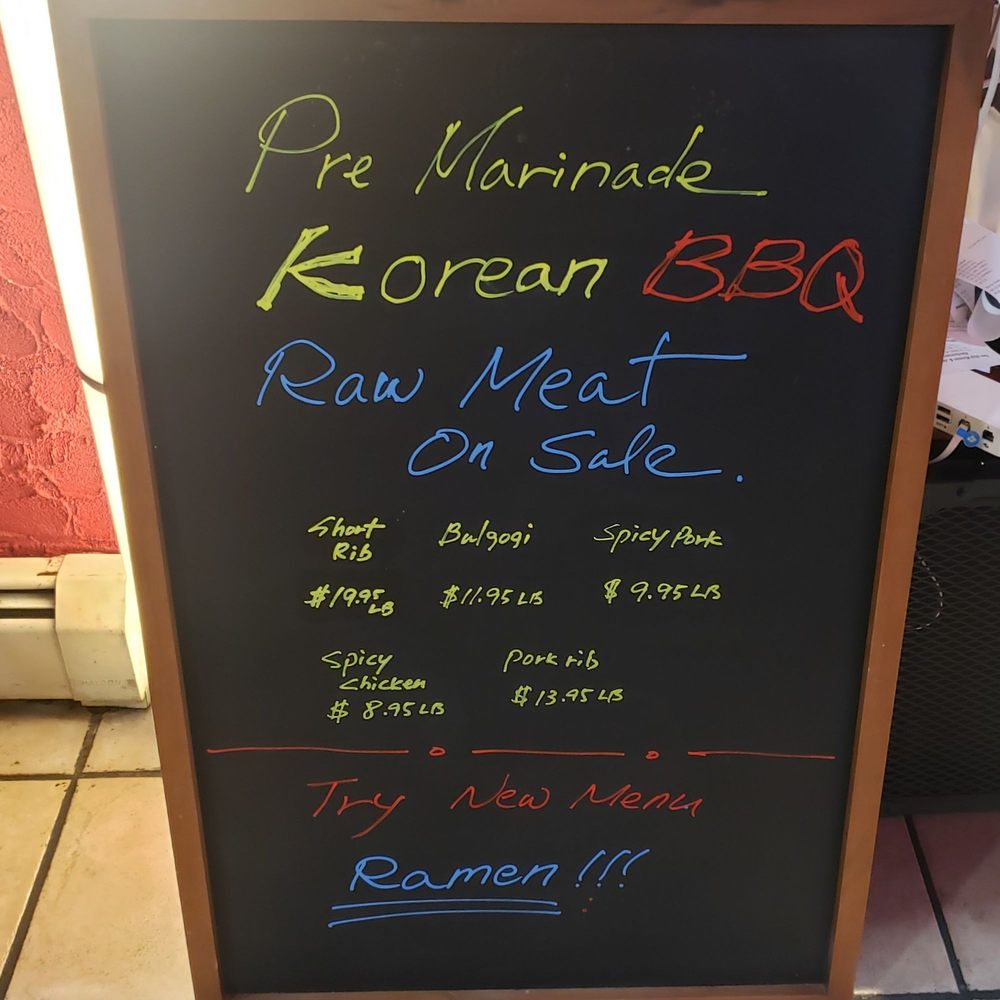 Pre Marinade
Korean BBQ
Raw Meat
On Sale.
Short Rib
$19.95 LB
Bulgogi
$11.95 LB
Spicy Pork
$ 9.95 LB
Spicy chicken
$ 8.95 LB
Pork rib
$ 13.95 LB
Try New Menu
Ramen!!!